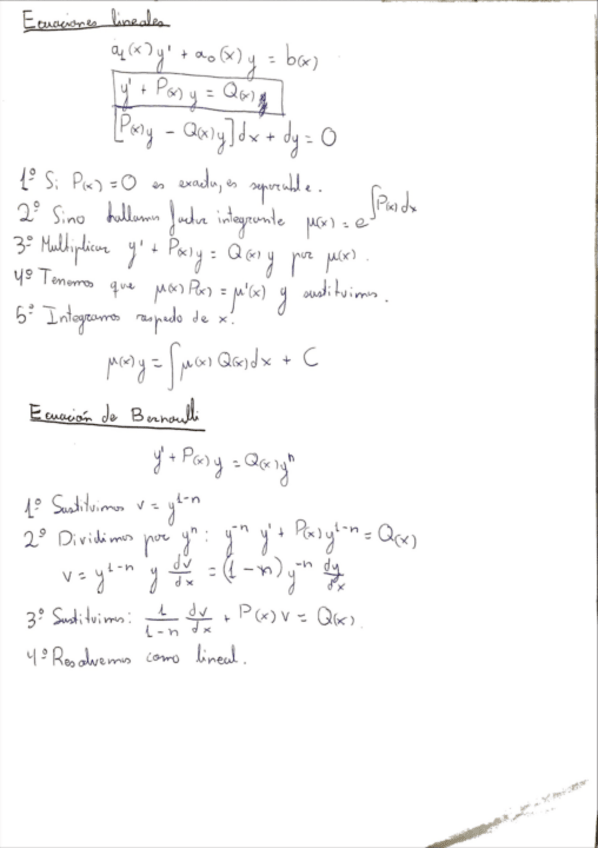 Ecuaciones lineales
a₁(x) y' + a₀(x) y = b(x)
y' + P(x) y = Q(x)
[P(x)y - Q(x)y] dx + dy = 0
1º Si P(x) = 0 es exacta, es separable.
2º Sino hallamos factor integrante μ(x) = e^∫P(x)dx
3º Multiplicar y' + P(x)y = Q(x) y por μ(x).
4º Tenemos que μ(x) P(x) = μ'(x) y sustituimos.
5º Integramos respecto de x.
μ(x) y = ∫ μ(x) Q(x) dx + C
Ecuación de Bernoulli
y' + P(x) y = Q(x) yⁿ
1º Sustituimos v = y^1-n
2º Dividimos por yⁿ: y^-n y' + P(x) y^1-n = Q(x)
v = y^1-n y dv/dx = (1-n) y^-n dy/dx
3º Sustituimos: 1/1-n dv/dx + P(x) v = Q(x).
4º Resolvemos como lineal.